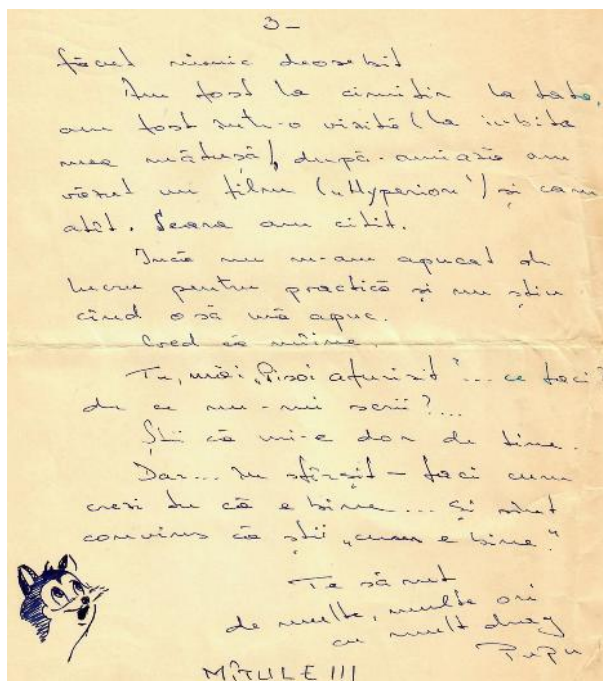 3-
făcut nimic deosebit
Am fost la cimitir la tata,
am fost într-o vizită (la iubita
mea mătușă), după-amiază am
văzut un film („Hyperion") și cam
atît. Seara am citit.
Încă nu m-am apucat de
lucru pentru practică și nu știu
cînd o să mă apuc.
Cred că mîine.
Tu, măi „Pisoi afurisit"... ce faci?
de ce nu-mi scrii?...
Știi că mi-e dor de tine.
Dar... în sfîrșit - faci cum
crezi tu că e bine... și sînt
convins că știi „cum e bine".
Te sărut
de multe, multe ori
cu mult drag
Pupu
MÎȚULE!!!